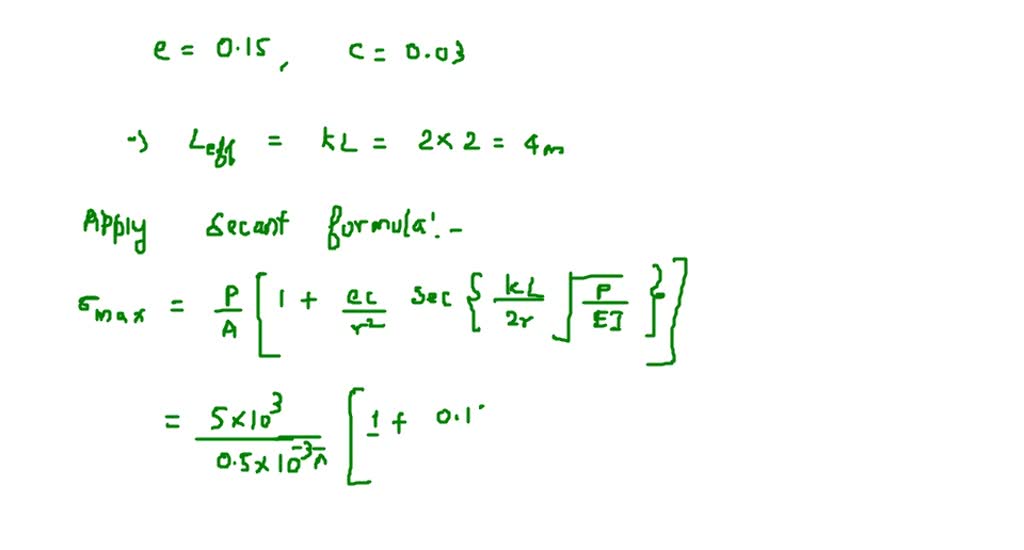 e = 0.15, c = 0.03
→ L_eff = kL = 2×2 = 4m
Apply Secant formula:-
σ_max = P/A [1 + ec/r² Sec {kL/2r √(P/EI)}]
= 5×10³/0.5×10⁻³π [1 + 0.1